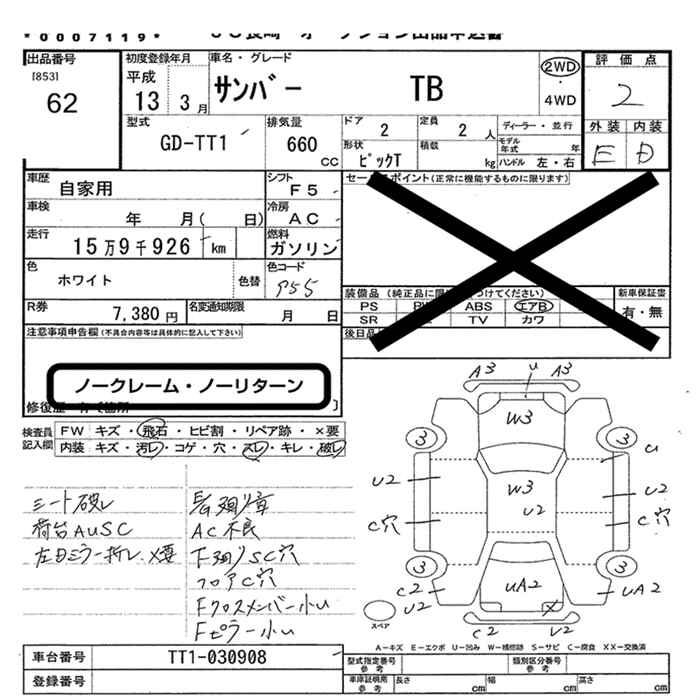 *0007119*
出品番号
[853]
62
初度登録年月
平成
13 3月
車名・グレード
サンバー TB
2WD
・
4WD
評価点
2
外装 内装
E D
型式
GD-TT1
排気量
660
cc
ドア
2
定員
2 人
ディーラー・並行
形状
ピックT
積載
kg
モデル年式 年
ハンドル 左・右
車歴
自家用
シフト
F5
車検
年 月( 日)
冷房
AC
走行
15万9千926 km
燃料
ガソリン
色
ホワイト
色替
色コード
R券
7,380円
名変通知期限
月 日
セールスポイント(正常に機能するものに限ります)
装備品
PS ABS エアB
SR TV カワ
新車保証書
有・無
注意事項申告欄(不具合内容等は具体的に記入して下さい)
ノークレーム・ノーリターン
検査員
記入欄
FW キズ・飛石・ヒビ割・リペア跡・×要
内装 キズ・汚レ・コゲ・穴・スレ・キレ・破レ
シート破レ
荷台AUSC
左Dミラー折レ.X要
AC不良
下廻りSC穴
フロアC穴
Fクロスメンバー小U
Fピラー小U
A3 U A3
W3
3 3
U
U2 W3 U2
U2
C穴 C穴
3 3
C2 UA2 UA2
U2 X
C2 U2
スペア
A-キズ E-エクボ U-凹み W-補修跡 S-サビ C-腐食 XX-交換済
車台番号
TT1-030908
登録番号
型式指定番号
参考
類別区分番号
参考
車庫証明用
参考
長さ cm 幅 cm 高さ cm